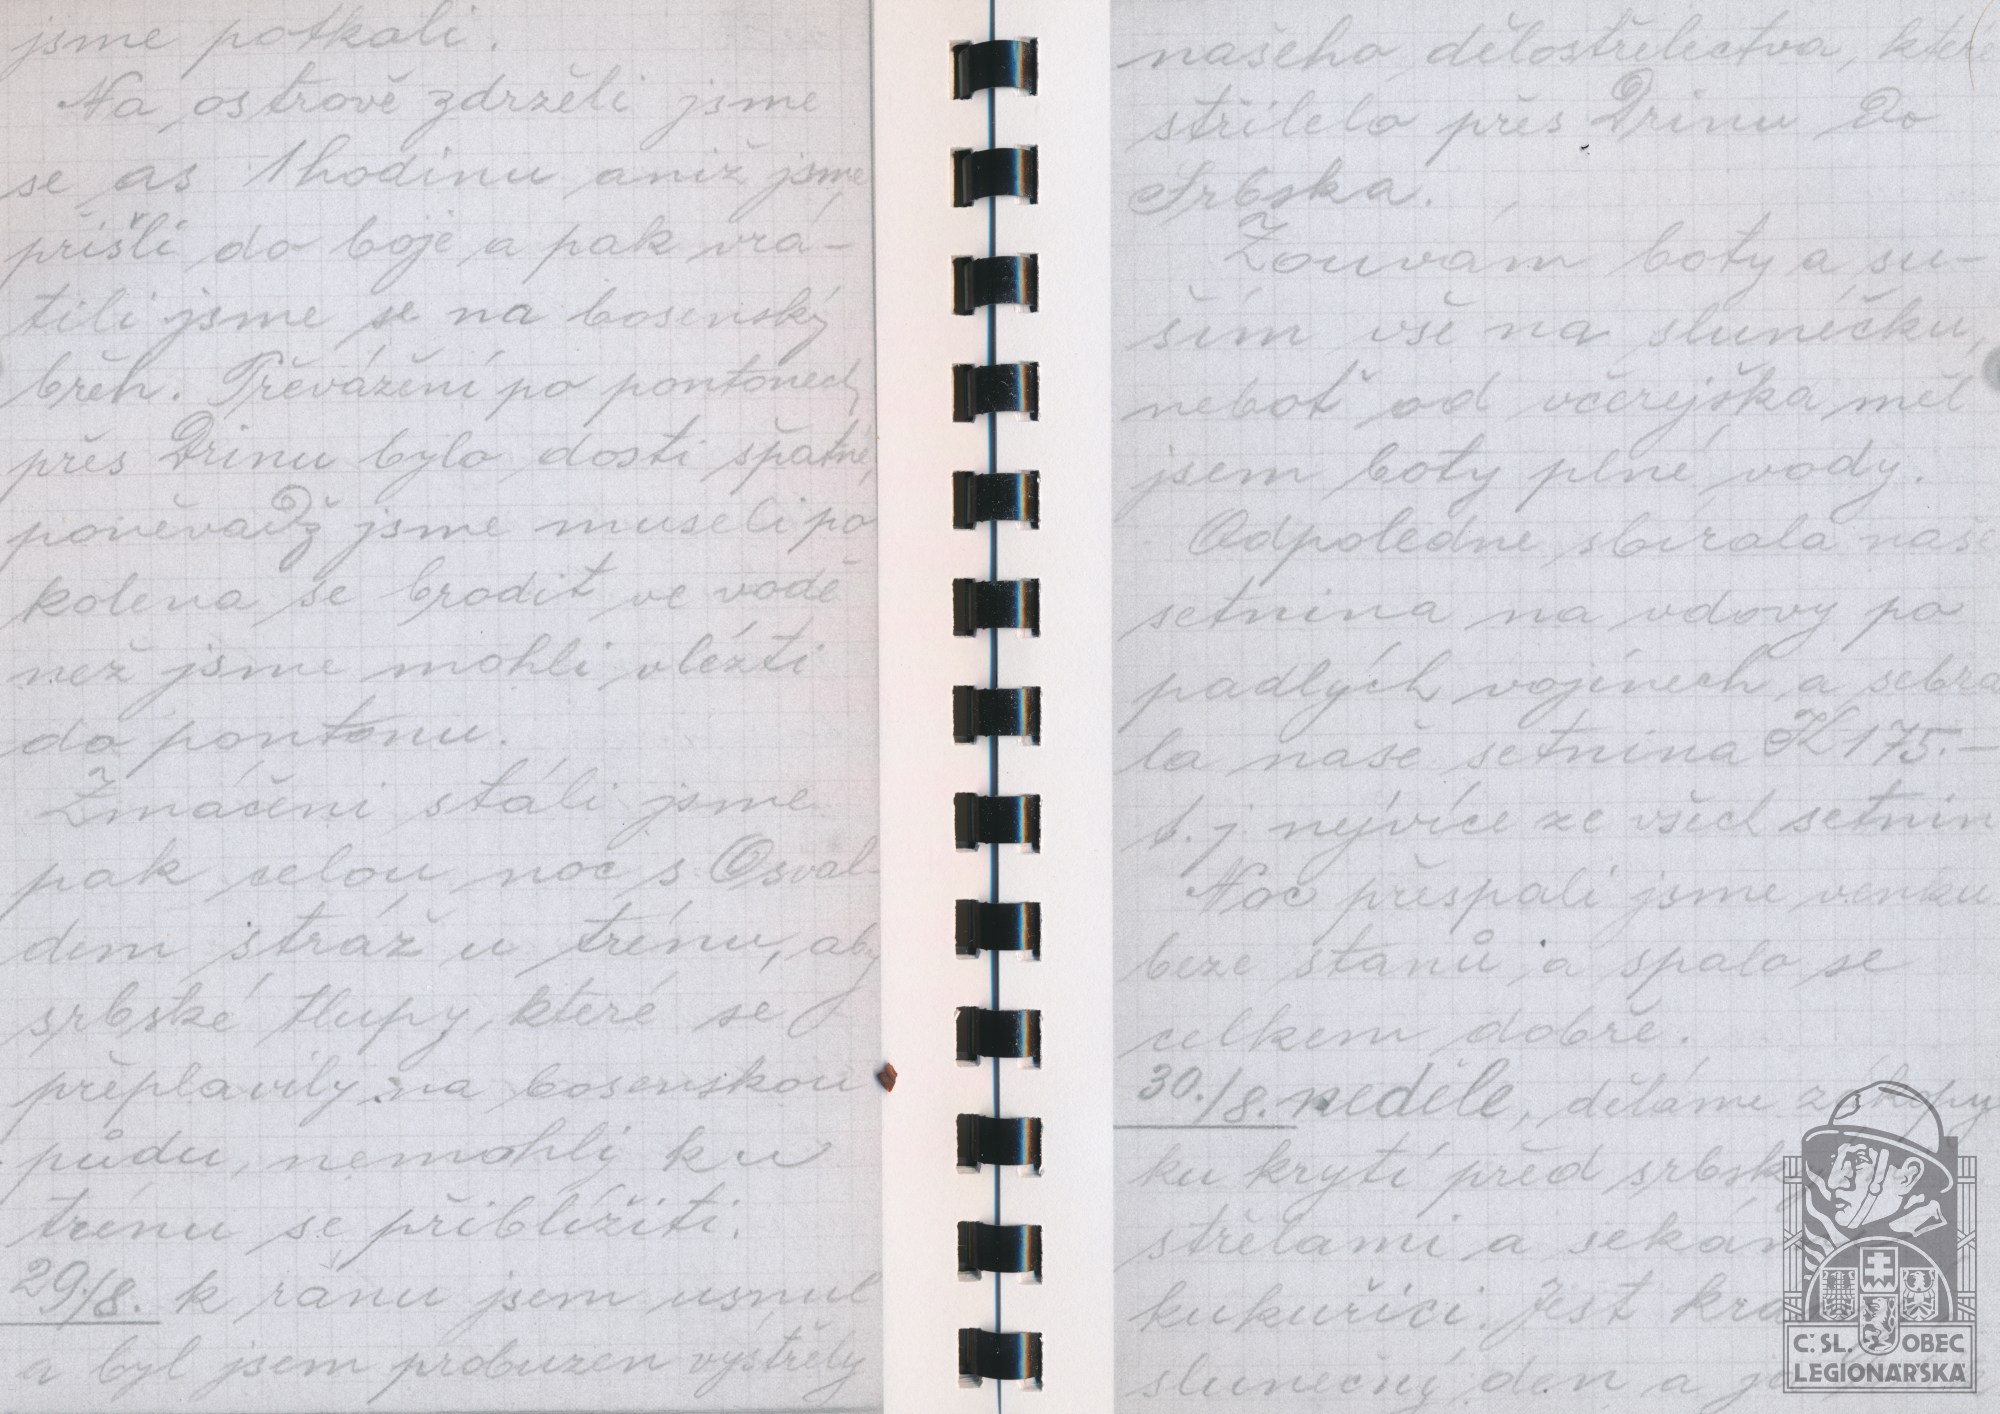 jsme potkali.
Na ostrově zdrželi jsme
se as 1 hodinu aniž jsme
přišli do boje a pak vrá-
tili jsme se na bosenský
břeh. Převážení po pontonech
přes Drinu bylo dosti špatné,
poněvadž jsme museli po
kolena se brodit ve vodě
než jsme mohli vlézti
do pontonu.
Zmáčeni stáli jsme
pak celou noc s Osval-
dem stráž u trénu, aby
srbské tlupy, které se
přeplavily na bosenskou
půdu, nemohly ku
trénu se přiblížiti.
29./8. k ránu jsem usnul
a byl jsem probuzen výstřely
našeho dělostřelectva, které
střílelo přes Drinu do
Srbska.
Zouvám boty a su-
ším vše na sluníčku,
neboť od včerejška měl
jsem boty plné vody.
Odpoledne sbírala naše
setnina na vdovy po
padlých vojínech a sebra
la naše setnina K 175.-
t. j. nejvíce ze všech setnin
Noc přespali jsme venku
beze stanů a spalo se
celkem dobře.
30./8. neděle, děláme zákopy
ku krytí před srbský
střelami a
kukuřici. Jest
slunečný den a
Č.SL. OBEC
LEGIONÁŘSKÁ